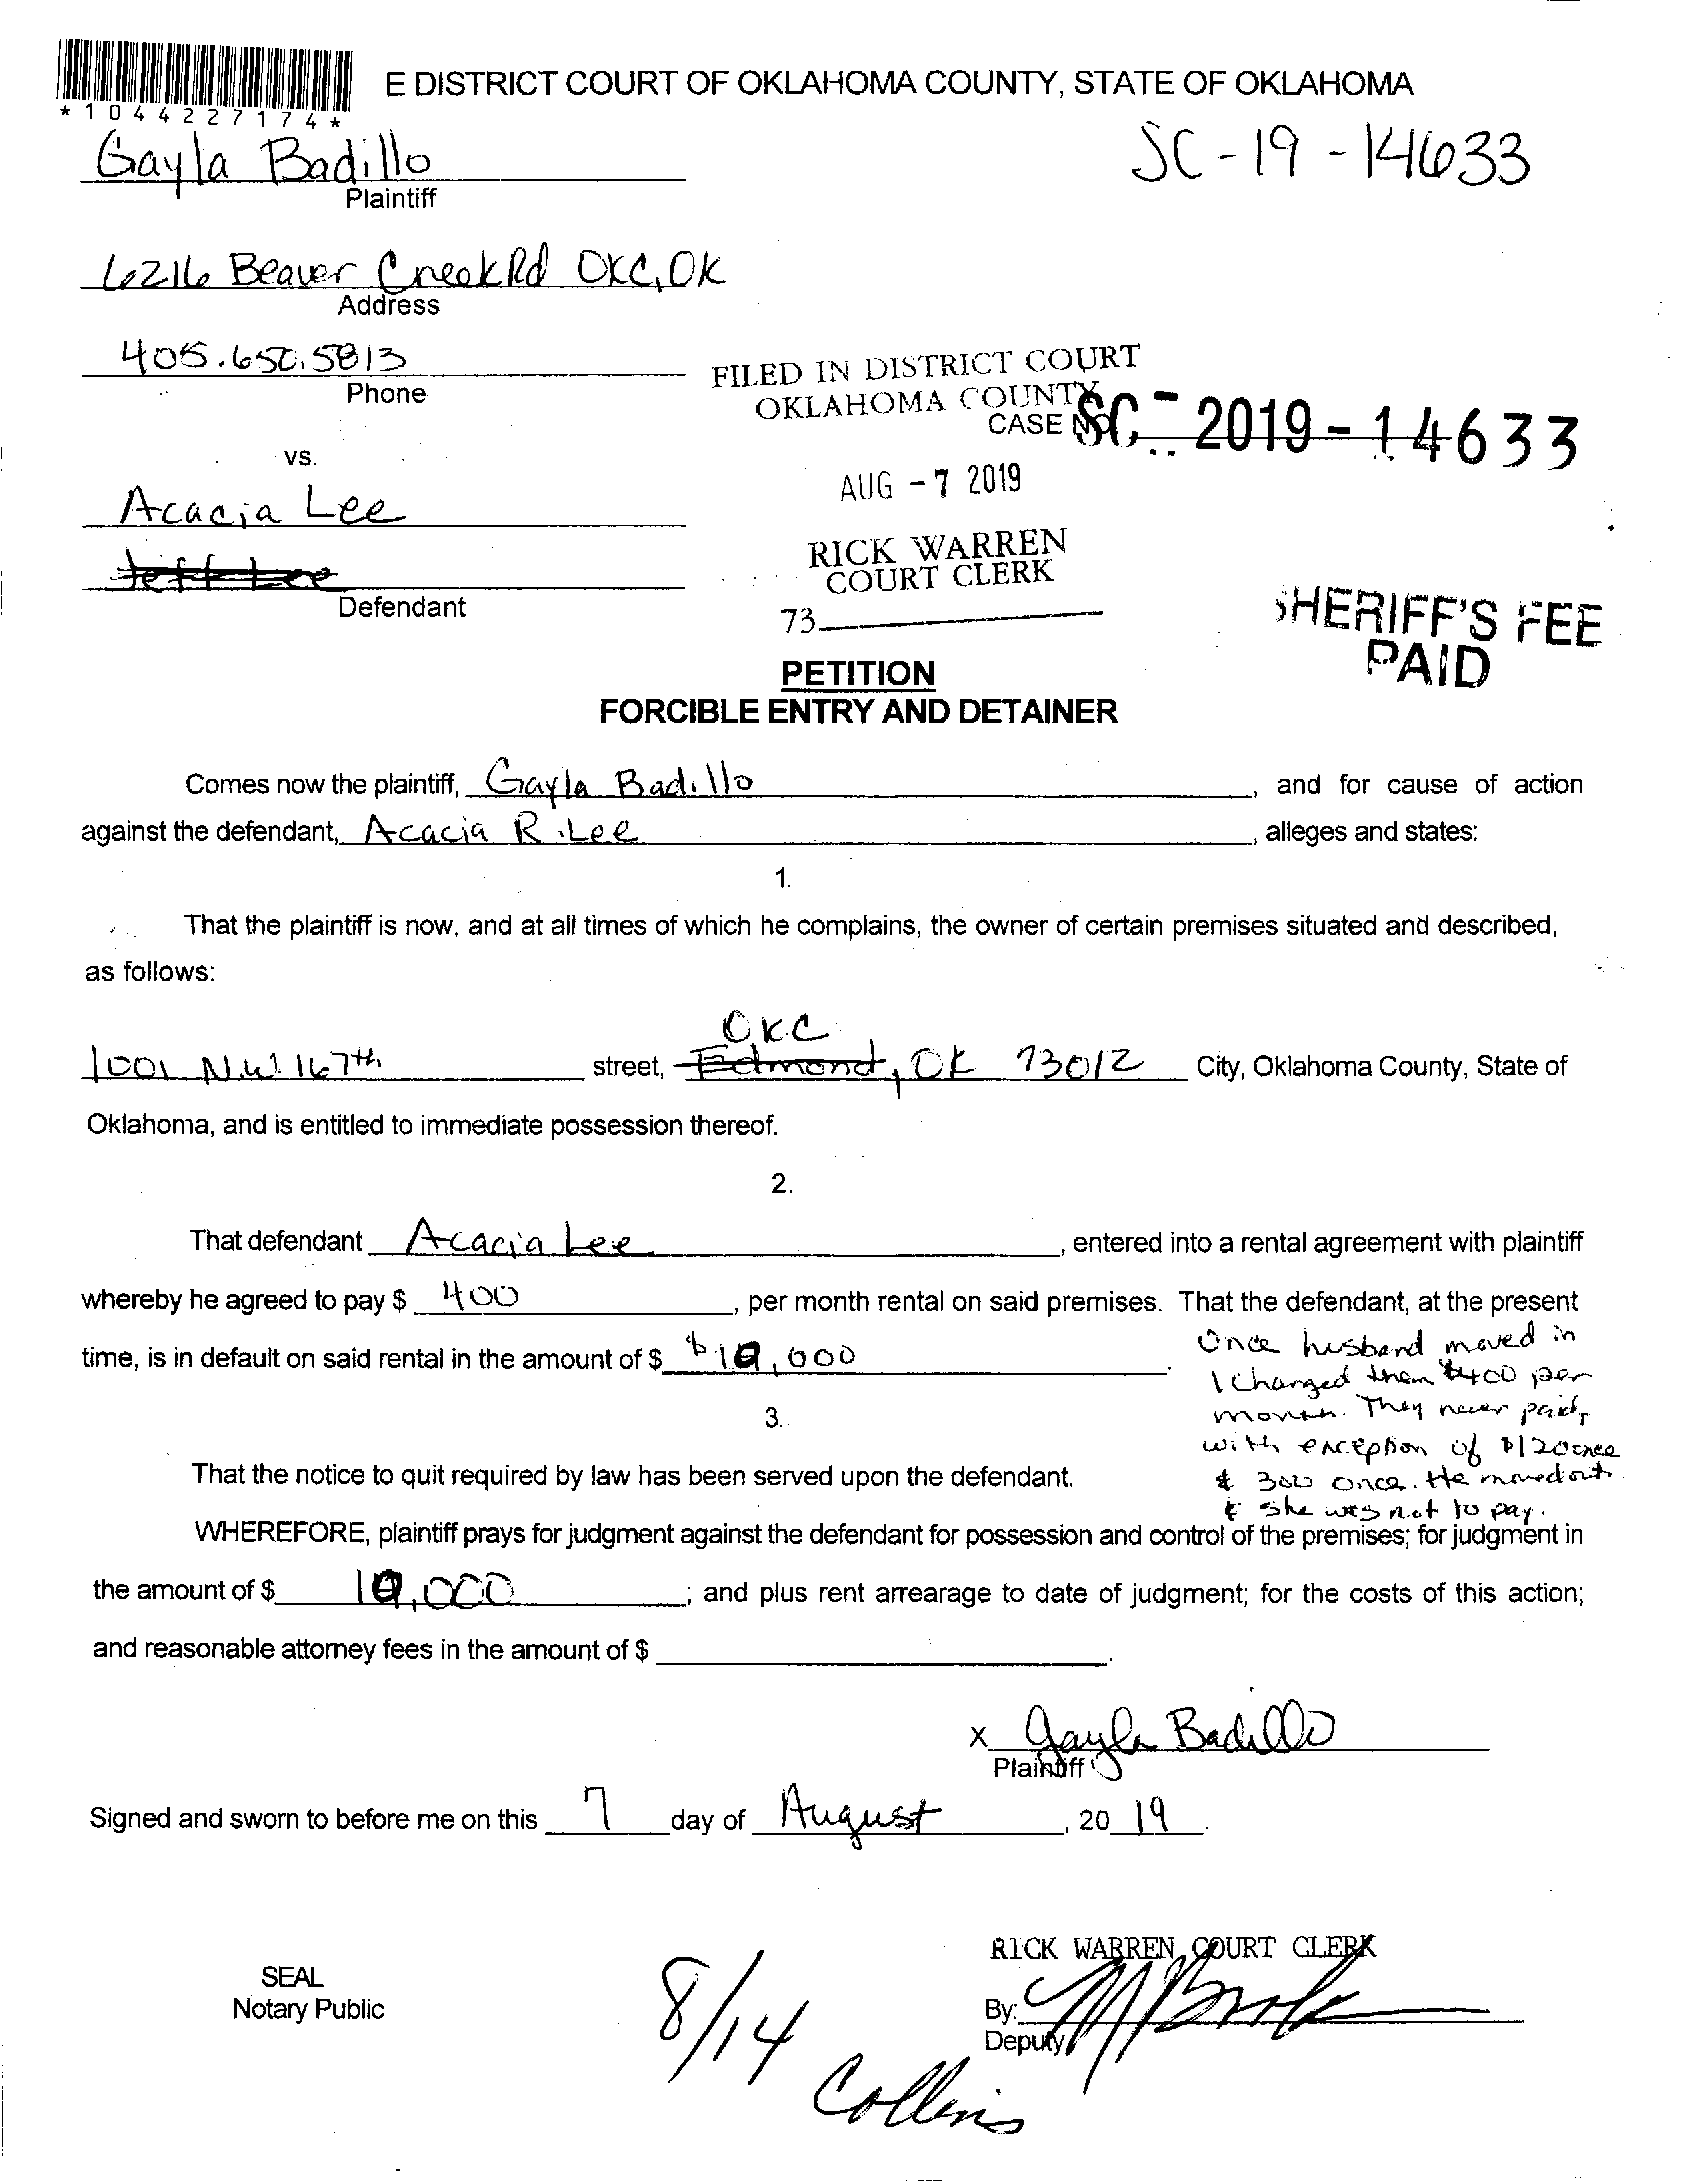 E DISTRICT COURT OF OKLAHOMA COUNTY, STATE OF OKLAHOMA
*1044227174*
Gayla Badillo
Plaintiff
SC-19-14633
6216 Beaver Creek Rd OKC, OK
Address
405.650.5813
Phone
FILED IN DISTRICT COURT
OKLAHOMA COUNTY
CASE NO. SC-2019-14633
vs.
AUG -7 2019
Acacia Lee
RICK WARREN
COURT CLERK
Jeff Lee
Defendant
73
SHERIFF'S FEE
PAID
PETITION
FORCIBLE ENTRY AND DETAINER
Comes now the plaintiff, Gayla Badillo, and for cause of action
against the defendant, Acacia R. Lee, alleges and states:
1.
That the plaintiff is now, and at all times of which he complains, the owner of certain premises situated and described,
as follows:
OKC
1001 N.W. 167th street, Edmond, OK 73012 City, Oklahoma County, State of
Oklahoma, and is entitled to immediate possession thereof.
2.
That defendant Acacia Lee, entered into a rental agreement with plaintiff
whereby he agreed to pay $ 400, per month rental on said premises. That the defendant, at the present
time, is in default on said rental in the amount of $ $10,000.
Once husband moved in
I charged them $400 per
month. They never paid,
with exception of $120 once
& 300 once. He moved out
& she was not to pay.
3.
That the notice to quit required by law has been served upon the defendant.
WHEREFORE, plaintiff prays for judgment against the defendant for possession and control of the premises; for judgment in
the amount of $ 10,000; and plus rent arrearage to date of judgment; for the costs of this action;
and reasonable attorney fees in the amount of $ .
x Gayla Badillo
Plaintiff
Signed and sworn to before me on this 7 day of August, 20 19.
RICK WARREN, COURT CLERK
SEAL
Notary Public
By:
Deputy
8/14
Collins